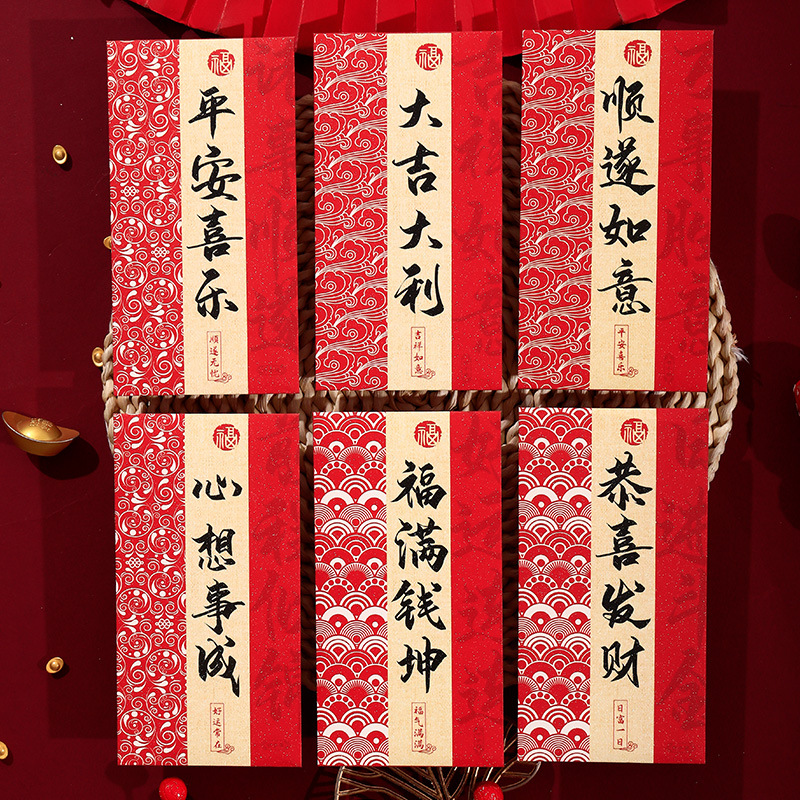 福
平安喜乐
顺遂无忧
福
大吉大利
吉祥如意
福
顺遂如意
平安喜乐
福
心想事成
好运常在
福
福满钱坤
福气满满
福
恭喜发财
日富一日